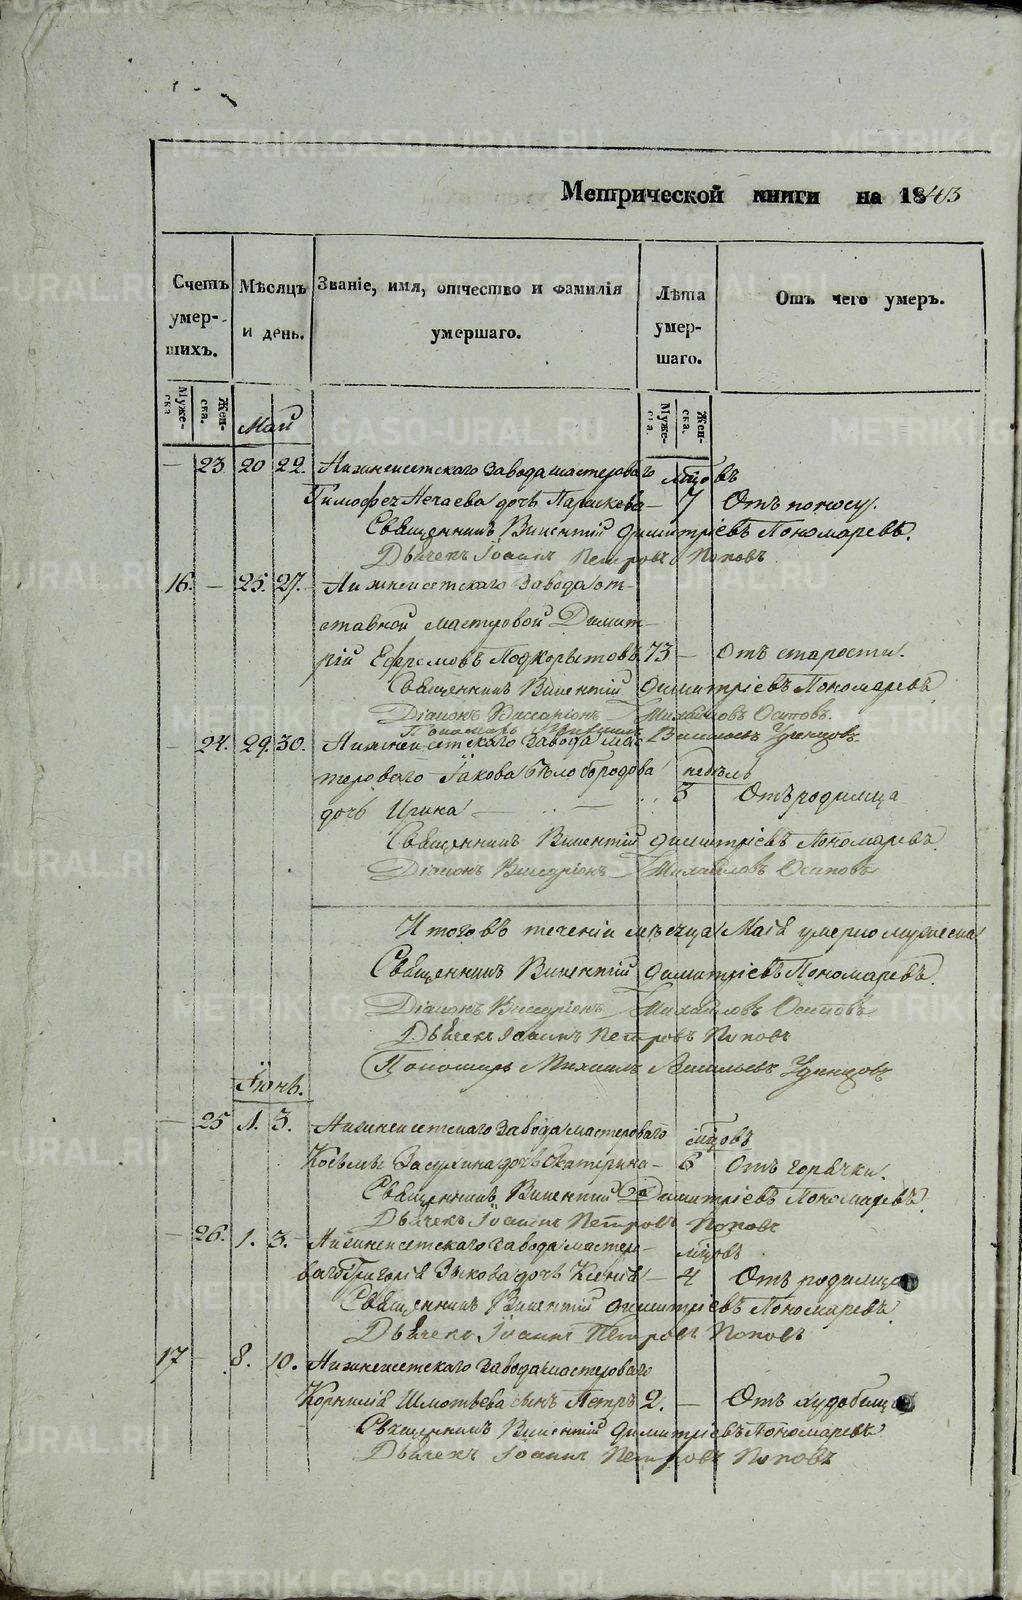 METRIKI.GASO-URAL.RU
Метрической книги на 1843
Счетъ умер-шихъ.
Мѣсяцъ и день.
Званіе, имя, отчество и фамилія умершаго.
Лѣта умер-шаго.
Отъ чего умеръ.
Муже-ска
Жен-ска.
Май
Муже-ска.
Жен-ска.
— 23 20 22. Нижнеисетскаго Завода мастероваго мцовъ
Тимофея Нечаева дочь Параскева — 7 Отъ поносу.
Священникъ Викентій Димитріевъ Пономаревъ.
Дьячекъ Іоаннъ Петровъ Поповъ
16. — 25. 27. Нижнеисетскаго Завода от-
ставной мастеровой Димит-
рій Ефремовъ Подкорытовъ 73 — Отъ старости.
Священникъ Викентій Димитріевъ Пономаревъ
Діаконъ Виссаріонъ Михайловъ Осиповъ.
Пономарь Михаилъ Васильевъ Удинцовъ
— 24. 29. 30. Нижнеисетскаго Завода мас-
тероваго Іакова Бѣлобородова недѣль
дочь Ирина — 3 Отъ родимца
Священникъ Викентій Димитріевъ Пономаревъ
Діаконъ Виссаріонъ Михайловъ Осиповъ
Итого въ теченіи мѣсяца Маія умерло мужеска
Священникъ Викентій Димитріевъ Пономаревъ.
Діаконъ Виссаріонъ Михайловъ Осиповъ
Дьячекъ Іоаннъ Петровъ Поповъ
Пономарь Михаилъ Васильевъ Удинцовъ
Іюнь.
— 25 1. 3. Нижнеисетскаго Завода мастероваго мцовъ
Косьмы Засухина дочь Екатерина — 6 Отъ горячки.
Священникъ Викентій Димитріевъ Пономаревъ.
Дьячекъ Іоаннъ Петровъ Поповъ
— 26. 1. 3. Нижнеисетскаго Завода мастер- мцовъ
ваго Григорія Зыкова дочь Ксенія — 4 Отъ родимца
Священникъ Викентій Димитріевъ Пономаревъ.
Дьячекъ Іоаннъ Петровъ Поповъ
17 — 8. 10. Нижнеисетскаго Завода мастероваго
Корнилія сынъ Петръ 2. — Отъ худобища
Священникъ Викентій Димитріевъ Пономаревъ
Дьячекъ Іоаннъ Петровъ Поповъ